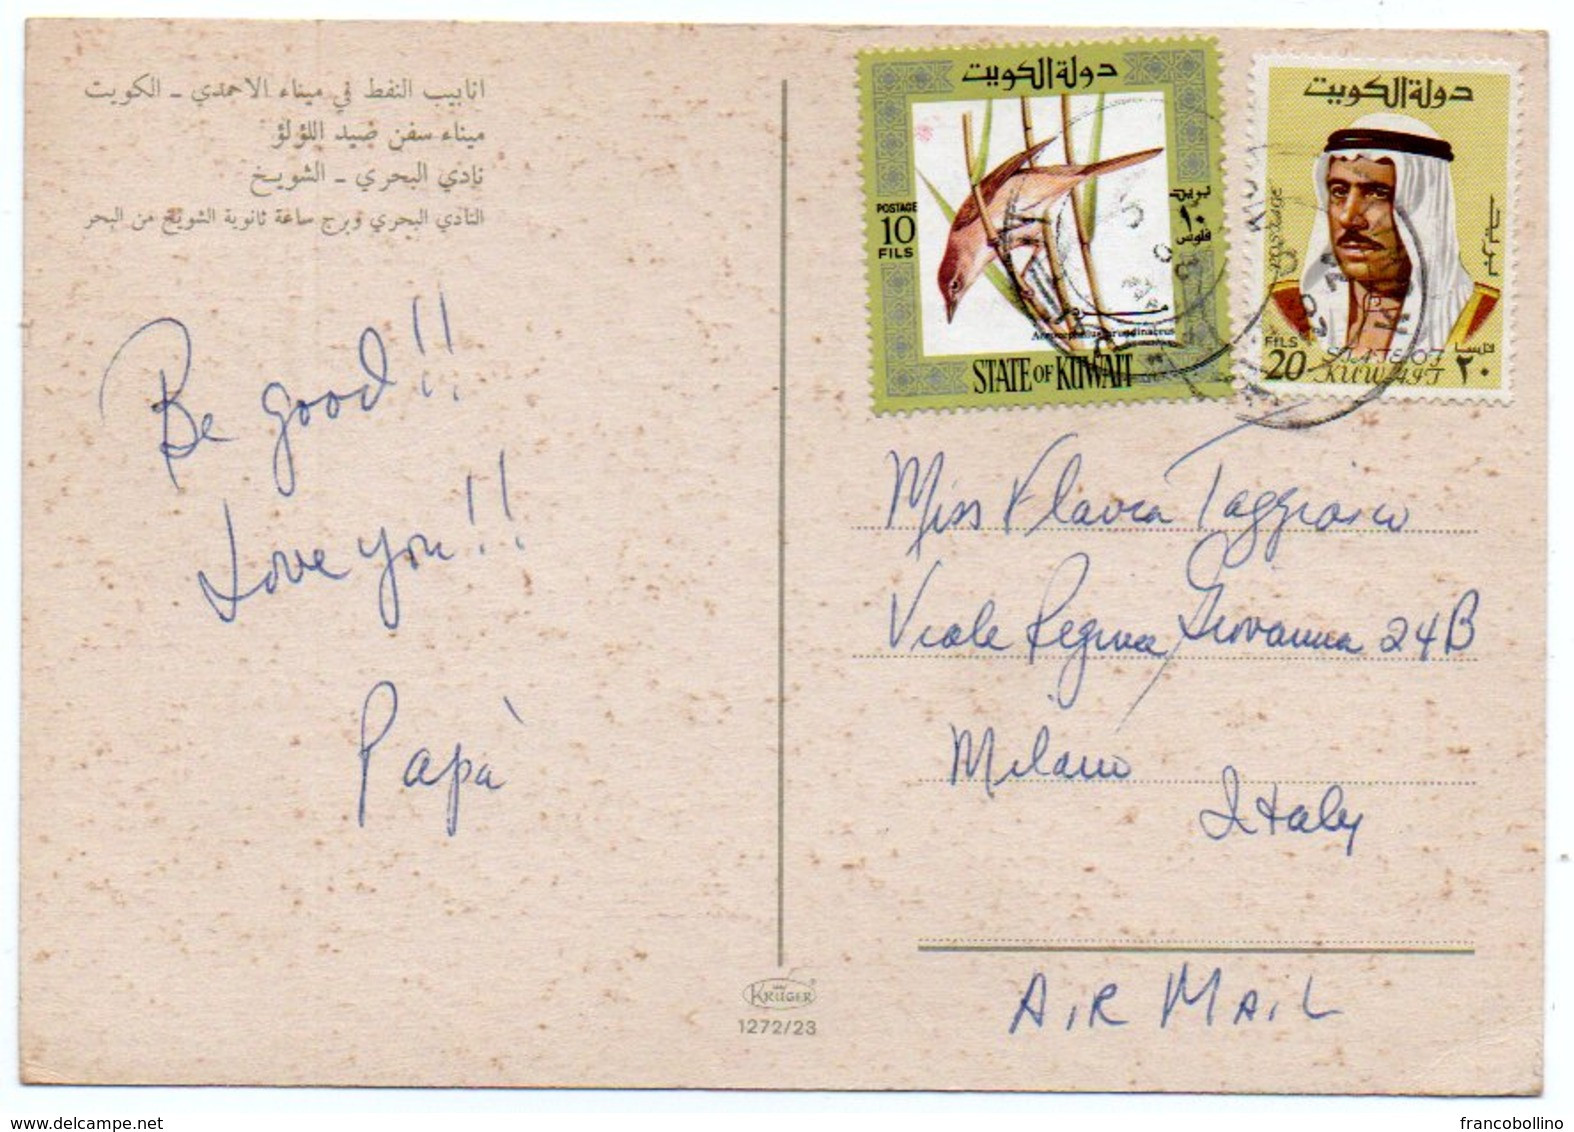 انابيب النفط في ميناء الاحمدي - الكويت
ميناء سفن صيد اللؤلؤ
نادي البحري - الشويخ
النادي البحري وبرج ساعة ثانوية الشويخ من البحر
Be good!!
Love you!!
Papà
KRÜGER
1272/23
دولة الكويت
POSTAGE
10
FILS
بريد
١٠
فلوس
STATE OF KUWAIT
دولة الكويت
POSTAGE
بريد
FILS
20
STATE OF
KUWAIT
فلسا
٢٠
Miss Flavia Taggiasco
Viale Regina Giovanna 24B
Milano
Italy
AIR MAIL
www.delcampe.net
francobollino